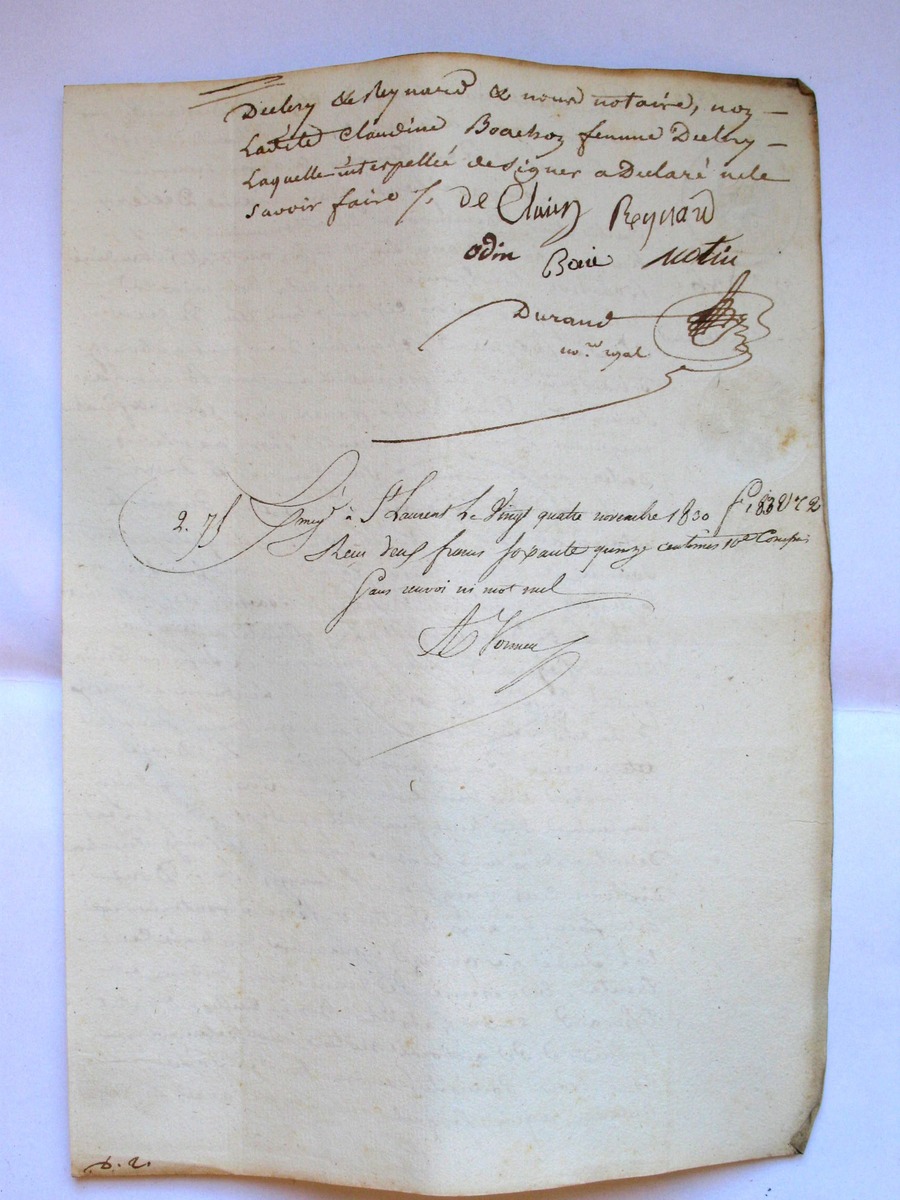 Declery & Reynard & nous notaire, non
Ladite Claudine Boachon femme Declery
Laquelle interpellée de signer a Declaré ne le
savoir faire /. de Clairy Reynard
odin Boié notin
Durand
no.re royal
2. 75 Enregé à St Laurent Le Vingt quatre novembre 1830 f° 183 V c 2
Recu deux francs soixante quinze centimes 10e Compris
Sans renvoi ni mot nul